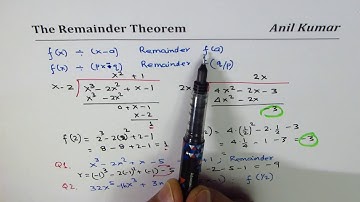 The Remainder Theorem
Anil Kumar
f(x) ÷ (x-a) Remainder f(a)
f(x) ÷ (px-q) Remainder f(q/p)
x² + 1
x-2 x³-2x²+x-1
x³-2x²
0+x-1
x-2
1
2x
4x²-2x-3
4x²-2x
-3
f(2) = 2³-2(2)²+2-1
= 8-8+2-1 = 1
= 4·(1/2)²-2·1/2-3
= 4·1/4-1-3 = -3
Q1. x³-2x²+x-5 Remainder
r=(-1)³-2(-1)²+(-1)-5 -2-5-1=-9
Q2. 32x⁵-16x⁴+3x f(1/2)